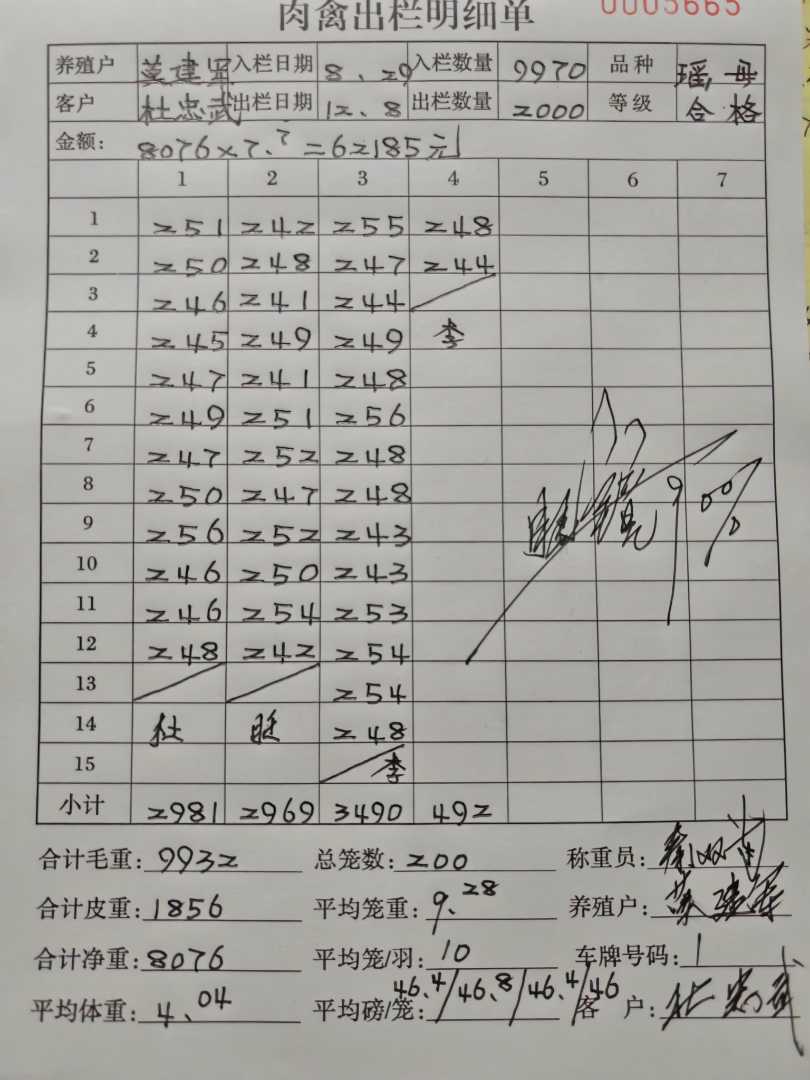 肉禽出栏明细单 0005665
养殖户 莫建军 入栏日期 8、29 入栏数量 9970 品种 瑶,母
客户 杜忠武 出栏日期 12、8 出栏数量 2000 等级 合格
金额: 8076×7.7=62185元
1 2 3 4 5 6 7
1 251 242 255 248
2 250 248 247 244
3 246 241 244
4 245 249 249 李
5 247 241 248
6 249 251 256
7 247 252 248
8 250 247 248
9 256 252 243
10 246 250 243
11 246 254 253
12 248 242 254
13 254
14 杜 248
15 李
小计 2981 2969 3490 492
合计毛重: 9932 总笼数: 200 称重员:
合计皮重: 1856 平均笼重: 9.28 养殖户:
合计净重: 8076 平均笼/羽: 10 车牌号码: 1
平均体重: 4、04 平均磅/笼: 46.4/46.8/46.4/46 客 户: 杜忠武